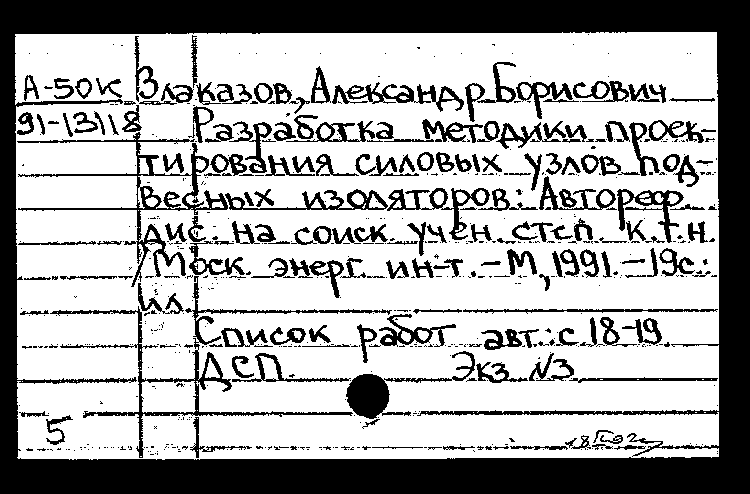 А-50К Злаказов, Александр Борисович
91-13118 Разработка методики проек-
тирования силовых узлов под-
весных изоляторов: Автореф.
дис. на соиск. учен. степ. К.т.н.
/Моск. энерг. ин-т. - М, 1991. - 19с.:
ил.
Список работ авт.: с. 18-19.
ДСП. Экз. №3
5